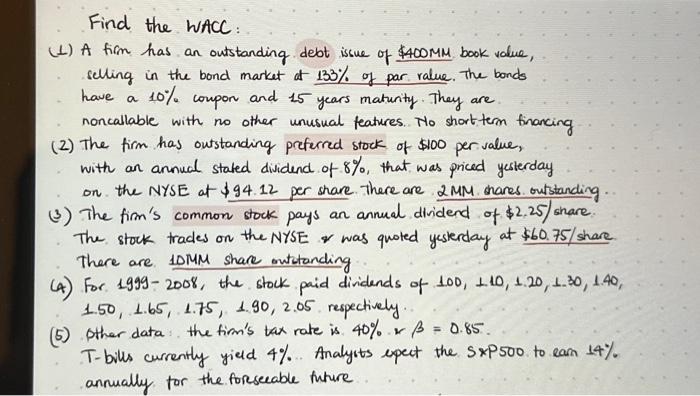 Find the WACC:
(1) A firm has an outstanding debt issue of $400MM book value,
selling in the bond market at 133% of par value. The bonds
have a 10% coupon and 15 years maturity. They are
noncallable with no other unusual features. No short term financing
(2) The firm has outstanding preferred stock of $100 per value,
with an annual stated dividend of 8%, that was priced yesterday
on the NYSE at $94.12 per share. There are 2MM shares outstanding.
(3) The firm's common stock pays an annual dividend of $2.25/share.
The stock trades on the NYSE & was quoted yesterday at $60.75/share
There are 10MM share outstanding
(4) For 1999-2008, the stock paid dividends of 1.00, 1.10, 1.20, 1.30, 1.40,
1.50, 1.65, 1.75, 1.90, 2.05 respectively.
(5) Other data: the firm's tax rate is 40% & β = 0.85.
T-bills currently yield 4%. Analysts expect the S&P500 to earn 14%
annually for the foreseeable future